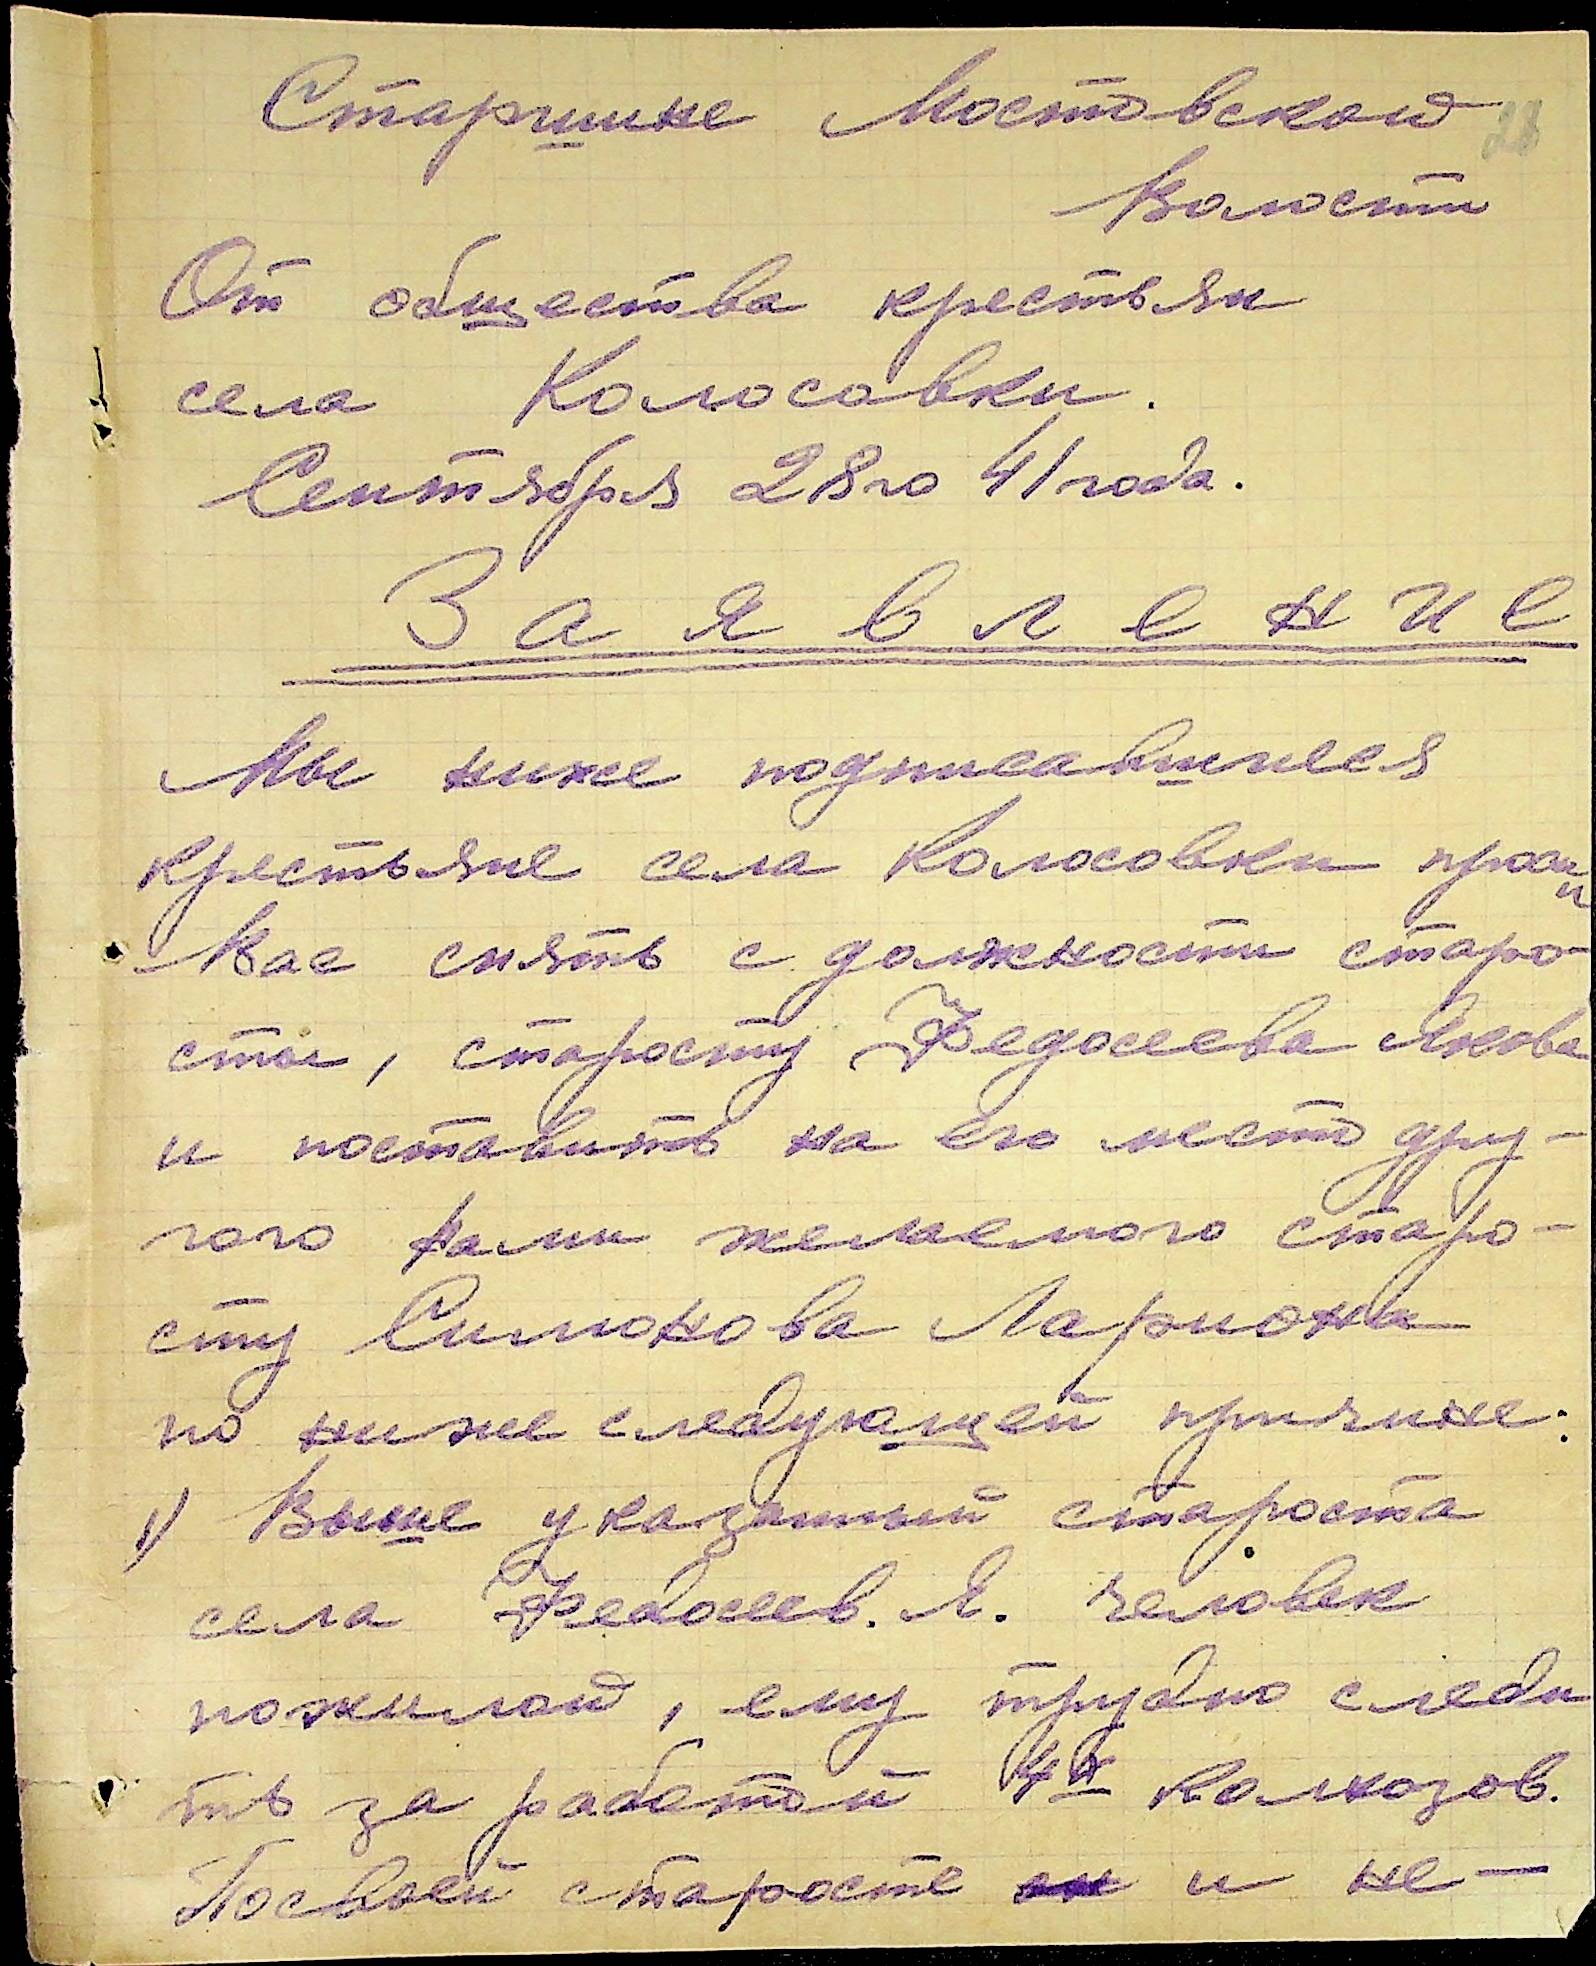 Старшине Мостовской
28
Волости
От общества крестьян
села Колосовки.
Сентября 28го 41 года.
Заявление
Мы ниже подписавшиеся
крестьяне села Колосовки просим
Вас снять с должности старо-
сты, старосту Федосеева Якова
и поставить на его место дру-
гого нами желаемого старо-
сту Симонова Лариона
по ниже следующей причине:
1) Выше указанный староста
села Федосеев. Я. человек
пожилой, ему трудно следи
ть за работой 4х колхозов.
Посвоей старосте и не-